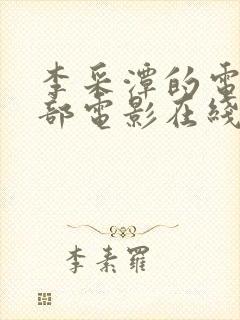 李采潭的電
部電影在綫
李素羅